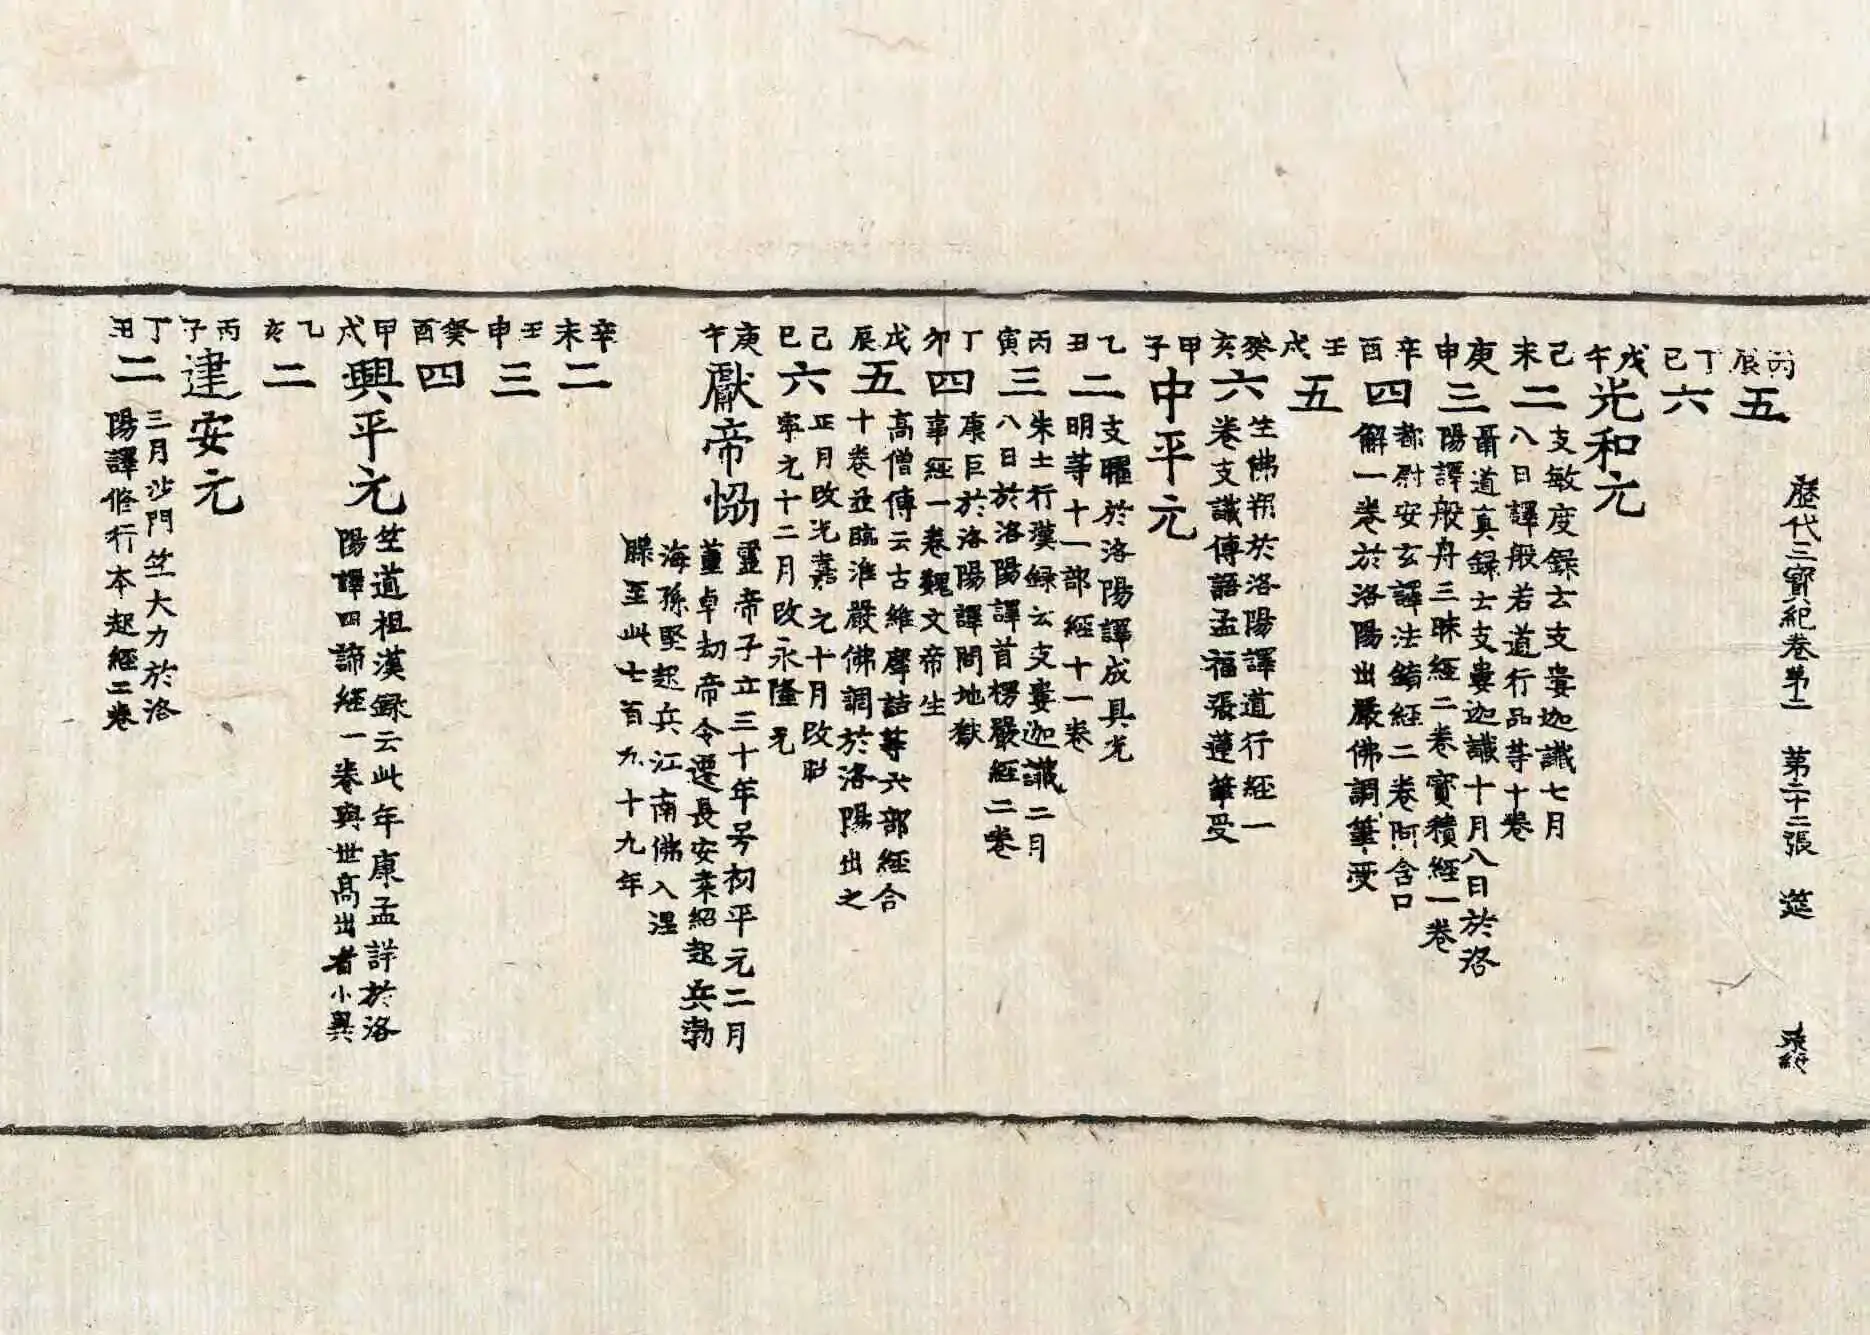 歷代三寶紀卷第二 第二十二張 莚
丙辰 五
丁巳 六
戊午 光和元
己未 二 支敏度録云支婁迦讖七月
八日譯般若道行品等十卷
庚申 三 聶道真録云支婁迦讖十月八日於洛
陽譯般舟三昧經二卷寳積經一卷
辛酉 四 都尉安玄譯法鏡經二卷阿含口
解一卷於洛陽出嚴佛調筆受
壬戌 五
癸亥 六 竺佛朔於洛陽譯道行經一
卷支讖傳語孟福張蓮筆受
甲子 中平元
乙丑 二 支曜於洛陽譯成具光
明等十一部經十一卷
丙寅 三 朱士行漢録云支婁迦讖二月
八日於洛陽譯首楞嚴經二卷
丁卯 四 康巨於洛陽譯問地獄
事經一卷魏文帝生
戊辰 五 高僧傳云古維摩詰等六部經合
十卷並臨淮嚴佛調於洛陽出之
己巳 六 正月改光嘉元十月改
寧元十二月改永隆元
庚午 獻帝協 靈帝子立三十年号初平元二月
董卓劫帝令遷長安袁紹起兵勃
海孫堅起兵江南佛入涅
槃至此七百九十九年
辛未 二
壬申 三
癸酉 四
甲戌 興平元 竺道祖漢録云此年康孟詳於洛
陽譯四諦經一卷與世高出者小異
乙亥 二
丙子 建安元
丁丑 二 三月沙門竺大力於洛
陽譯修行本起經二卷